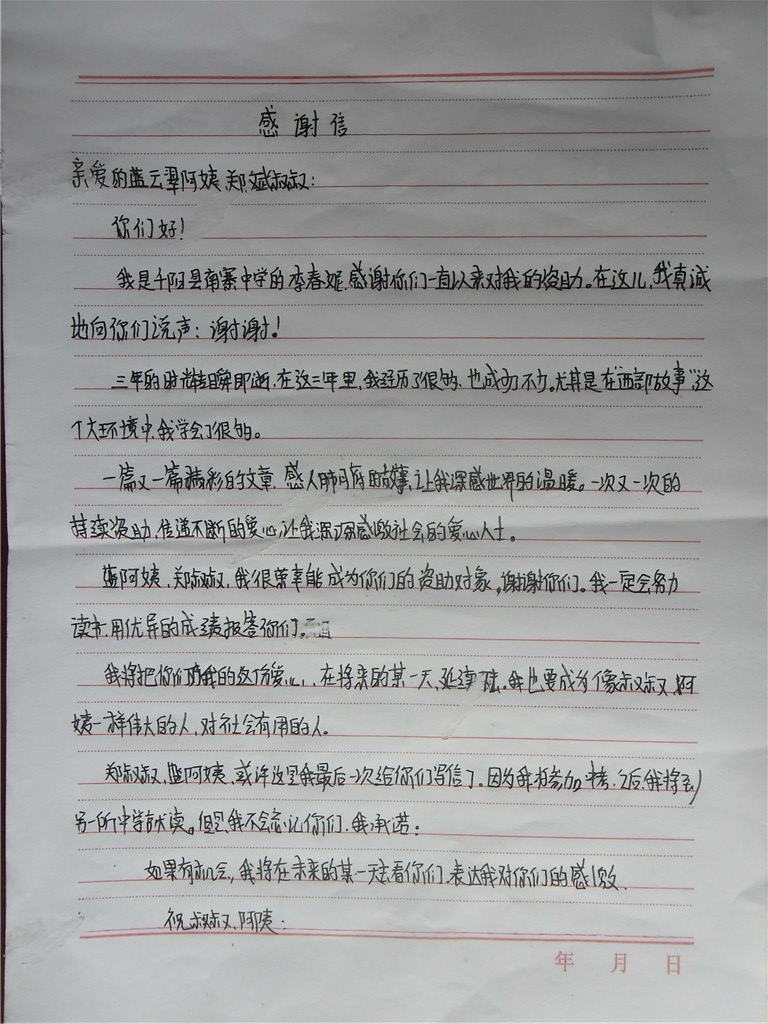 感谢信
亲爱的蓝云翠阿姨、郑斌叔叔：
你们好！
我是千阳县南寨中学的李春妮，感谢你们一直以来对我的资助。在这儿，我真诚
地向你们说声：谢谢！
三年的时光转瞬即逝，在这三年里，我经历了很多，也成功不少。尤其是在"西部故事"这
个大环境中，我学会了很多。
一篇又一篇精彩的文章，感人肺腑的故事，让我深感世界的温暖。一次又一次的
持续资助，传递不断的爱心，让我深深感激社会的爱心人士。
蓝阿姨、郑叔叔，我很荣幸能成为你们的资助对象，谢谢你们。我一定会努力
读书，用优异的成绩报答你们。
我将把你们的我的这份爱心，在将来的某一天，延续下去。我也要成为像叔叔、阿
姨一样伟大的人，对社会有用的人。
郑叔叔、蓝阿姨，或许这是我最后一次给你们写信了。因为我将参加中考，之后我将到
另一所中学就读。但是，我不会忘记你们，我承诺：
如果有机会，我将在未来的某一天去看你们，表达我对你们的感激。
祝叔叔、阿姨：
年 月 日